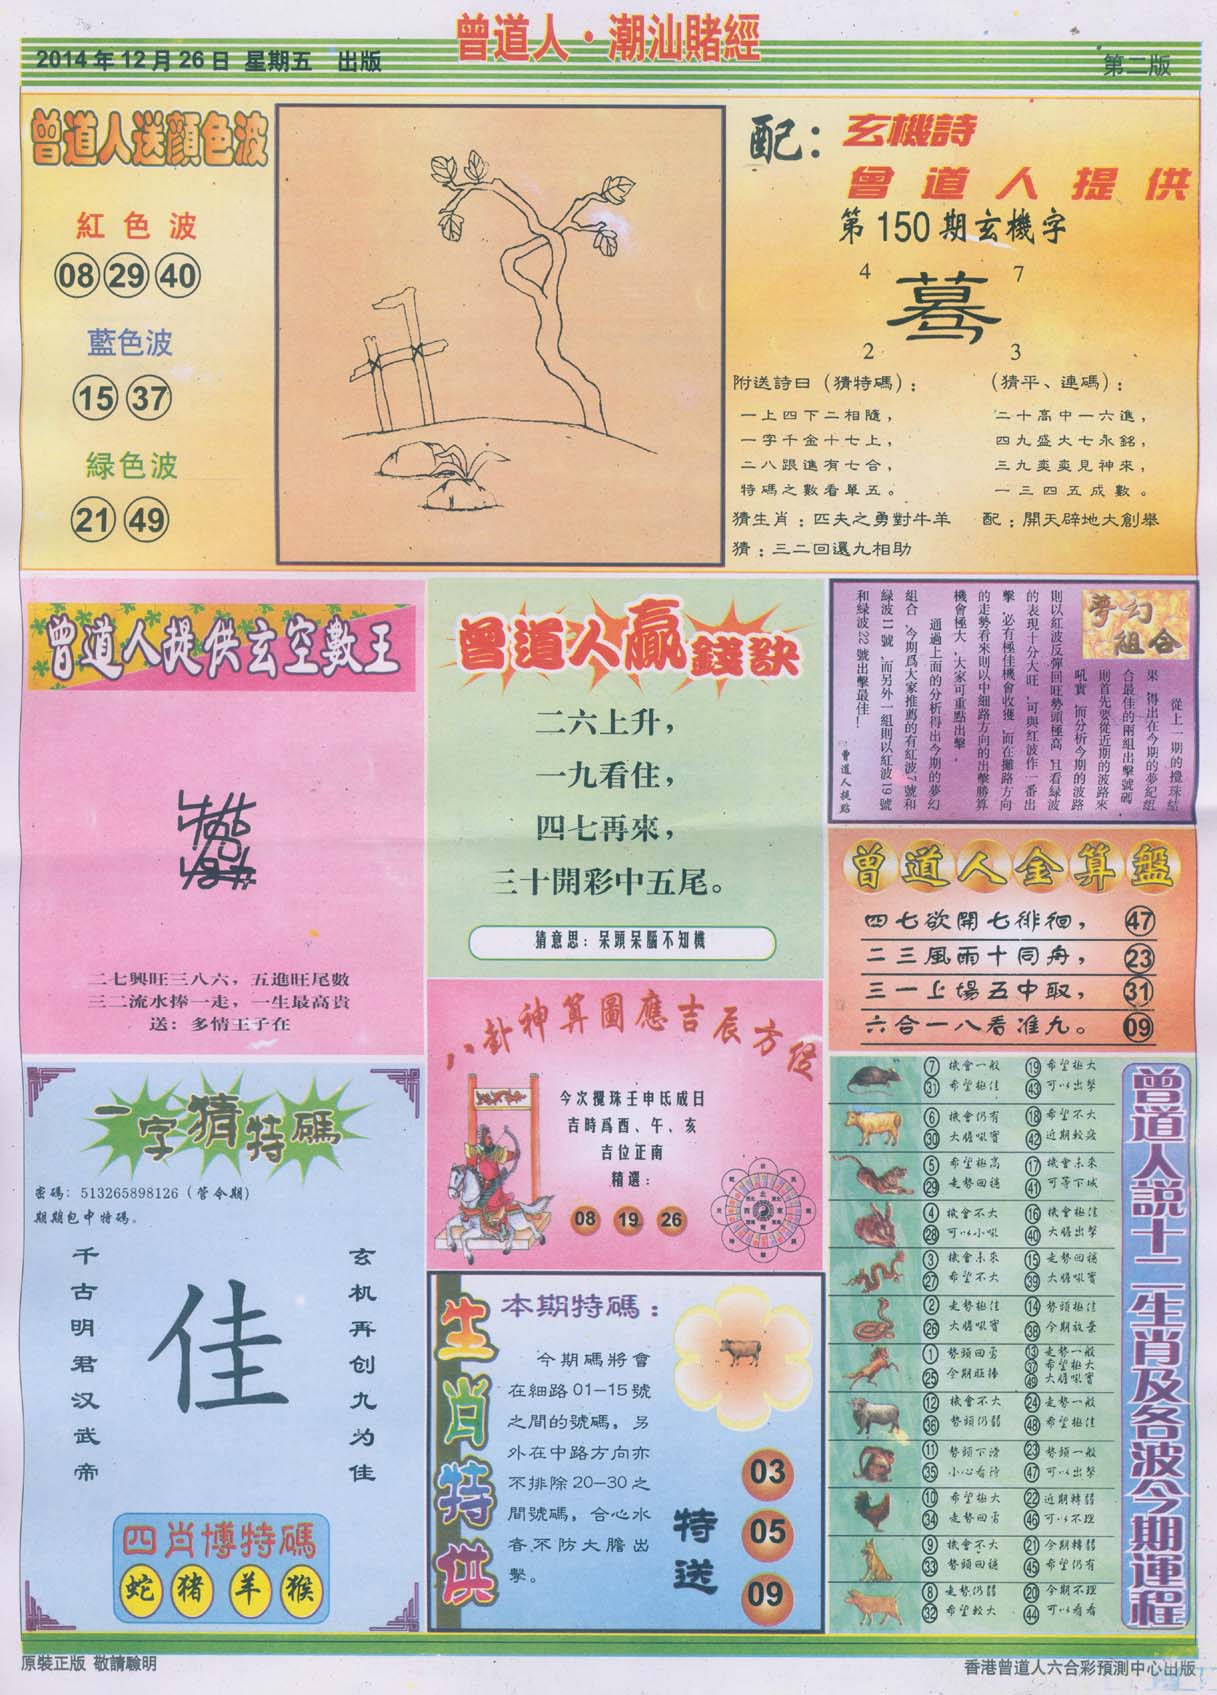 曾道人·潮汕賭經
2014年12月26日 星期五 出版
第二版
曾道人送顏色波
紅色波
08 29 40
藍色波
15 37
綠色波
21 49
配：玄機詩
曾道人提供
第150期玄機字
4 7
2 3
附送詩曰（猜特碼）：
一上四下二相隨，
一字千金十七上，
二八跟進有七合，
特碼之數看單五。
（猜平、連碼）：
二十高中一六進，
四九盛大七永銘，
三九奕奕見神來，
一三四五成數。
猜生肖：匹夫之勇對牛羊
配：開天辟地大創舉
猜：三二回還九相助
曾道人提供玄空數王
二七興旺三八六，五進旺尾數
三二流水捧一走，一生最高貴
送：多情王子在
曾道人贏錢訣
二六上升，
一九看住，
四七再來，
三十開彩中五尾。
猜意思：呆頭呆腦不知機
夢幻
組合
從上一期的攪珠結
果，得出在今期的夢紀組
合最佳的兩組出擊號碼
則首先要從近期的波路來
吼實，而分析今期的波路
則以紅波反彈回旺勢頭極高，且看綠波
的表現十分大旺，可與紅波作一番出
擊，必有極佳機會收獲，而在攤路方向
的走勢看來則以中細路方向的出擊勝算
機會極大，大家可重點出擊。
通過上面的分析得出今期的夢幻
組合，今期爲大家推薦的有紅波7號和
綠波11號，而另外一組則以紅波19號
和綠波22號出擊最佳！
曾道人提點
曾道人金算盤
四七欲開七徘徊， 47
二三風雨十同舟， 23
三一上場五中取， 31
六合一八看准九。 09
八卦神算圖應吉辰方從
今次攪珠壬申氐成日
吉時爲酉、午、亥
吉位正南
精選：
08 19 26
一字猜特碼
密碼：513265898126（管令期）
期期包中特碼。
千古明君汉武帝
佳
玄机再创九为佳
四肖博特碼
蛇 豬 羊 猴
生肖特供
本期特碼：
今期碼將會
在細路01-15號
之間的號碼，另
外在中路方向亦
不排除20-30之
間號碼，合心水
者不防大膽出
擊。
特送
03
05
09
7 機會一般 19 希望極大
31 希望極佳 43 可以出擊
6 機會仍有 18 希望不大
30 大膽吼實 42 近期較旺
5 希望極高 17 機會未來
29 走勢回穩 41 可等下城
4 機會不大 16 機會極佳
28 可以小吼 40 大膽出擊
3 機會未來 15 走勢回穩
27 希望不大 39 大膽吼實
2 走勢極佳 14 勢頭極佳
26 大膽吼實 38 今期放棄
1 勢頭回勇 13 走勢一般
37 希望極大
25 今期旺捧 49 大膽吼實
12 機會不大 24 走勢一般
36 勢頭仍弱 48 希望極佳
11 勢頭下滑 23 勢頭一般
35 小心看待 47 可以出擊
10 希望極大 22 近期轉弱
34 走勢回勇 46 可以不理
9 機會不大 21 今期轉弱
33 勢頭回穩 45 希望仍有
8 走勢仍弱 20 今期不理
32 希望較大 44 可以看看
曾道人說十二生肖及各波今期運程
原裝正版 敬請驗明
香港曾道人六合彩預測中心出版